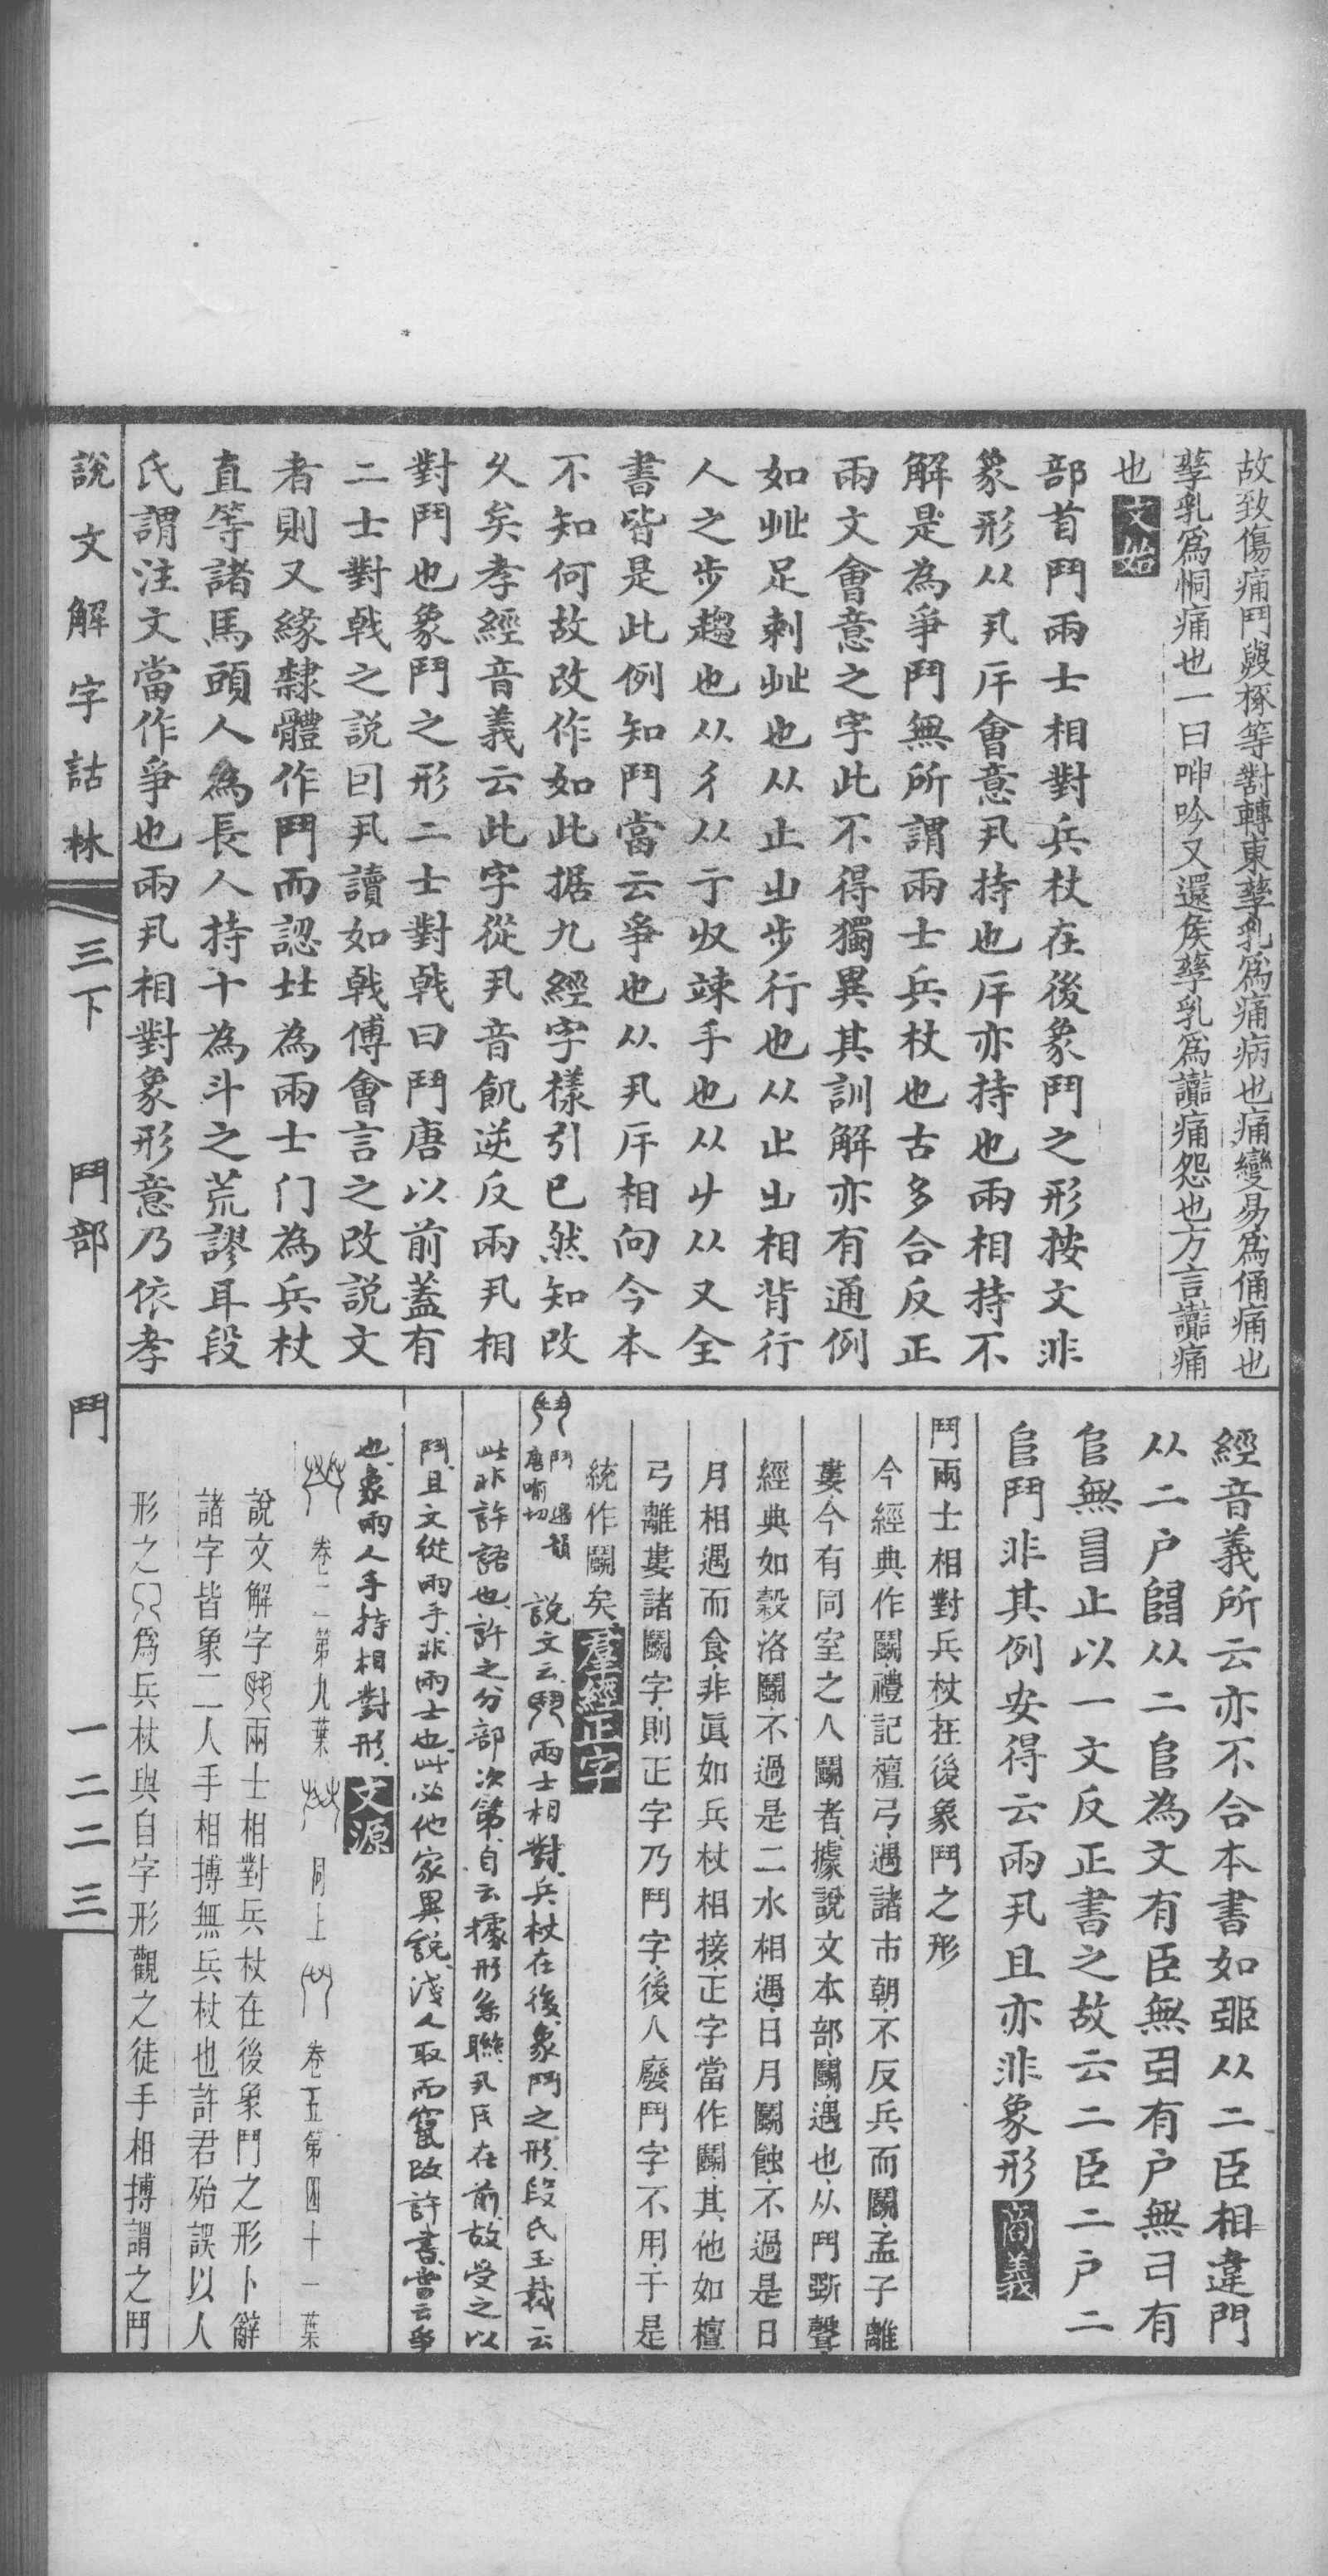 故致傷痛鬥㱿椓等對轉東孳乳爲痛病也痛變易爲俑痛也
孳乳爲恫痛也一曰呻吟又還矦孳乳爲讟痛怨也方言讟痛
也文始
部首鬥兩士相對兵杖在後象鬥之形按文非
象形从丮𠨭會意丮持也𠨭亦持也兩相持不
解是為爭鬥無所謂兩士兵杖也古多合反正
兩文會意之字此不得獨異其訓解亦有通例
如癶足剌癶也从止𣥂步行也从止𣥂相背行
人之步趨也从彳从亍収竦手也从𠂇从又全
書皆是此例知鬥當云爭也从丮𠨭相向今本
不知何故改作如此据九經字樣引已然知改
久矣孝經音義云此字從丮音飢逆反兩丮相
對鬥也象鬥之形二士對戟曰鬥唐以前蓋有
二士對戟之說因丮讀如戟傅會言之改說文
者則又緣隸體作鬥而認㚘為兩士门為兵杖
直等諸馬頭人為長人持十為斗之荒謬耳段
氏謂注文當作爭也兩丮相對象形意乃依孝
經音義所云亦不合本書如𦣦从二臣相違門
从二户𨺅从二𨸏為文有臣無有户無有
𨸏無止以一文反正書之故云二臣二户二
𨸏鬥非其例安得云兩丮且亦非象形商義
鬥兩士相對兵杖在後象鬥之形
今經典作鬭禮記檀弓遇諸市朝不反兵而鬭孟子離
婁今有同室之人鬭者據說文本部鬭遇也从鬥斲聲
經典如穀洛鬭不過是二水相遇日月鬭蝕不過是日
月相遇而食非眞如兵杖相接正字當作鬭其他如檀
弓離婁諸鬭字則正字乃鬥字後人廢鬥字不用于是
統作鬭矣羣經正字
鬥 鬥 遇韻 唐喻切 說文云鬥兩士相對兵杖在後象鬥之形段氏玉裁云
此非許語也許之分部次第自云據形系聯丮𠨭在前故受之以
鬥且文從兩手非兩士也此必他家異說淺人取而竄改許書當云爭
也象兩人手持相對形文源
卷一第九葉 同上 卷五第四十一葉
說文解字鬥兩士相對兵杖在後象鬥之形卜辭
諸字皆象二人手相搏無兵杖也許君殆誤以人
形之爲兵杖與自字形觀之徒手相搏謂之鬥
說文解字詁林 三下 鬥部 鬥 一二二三